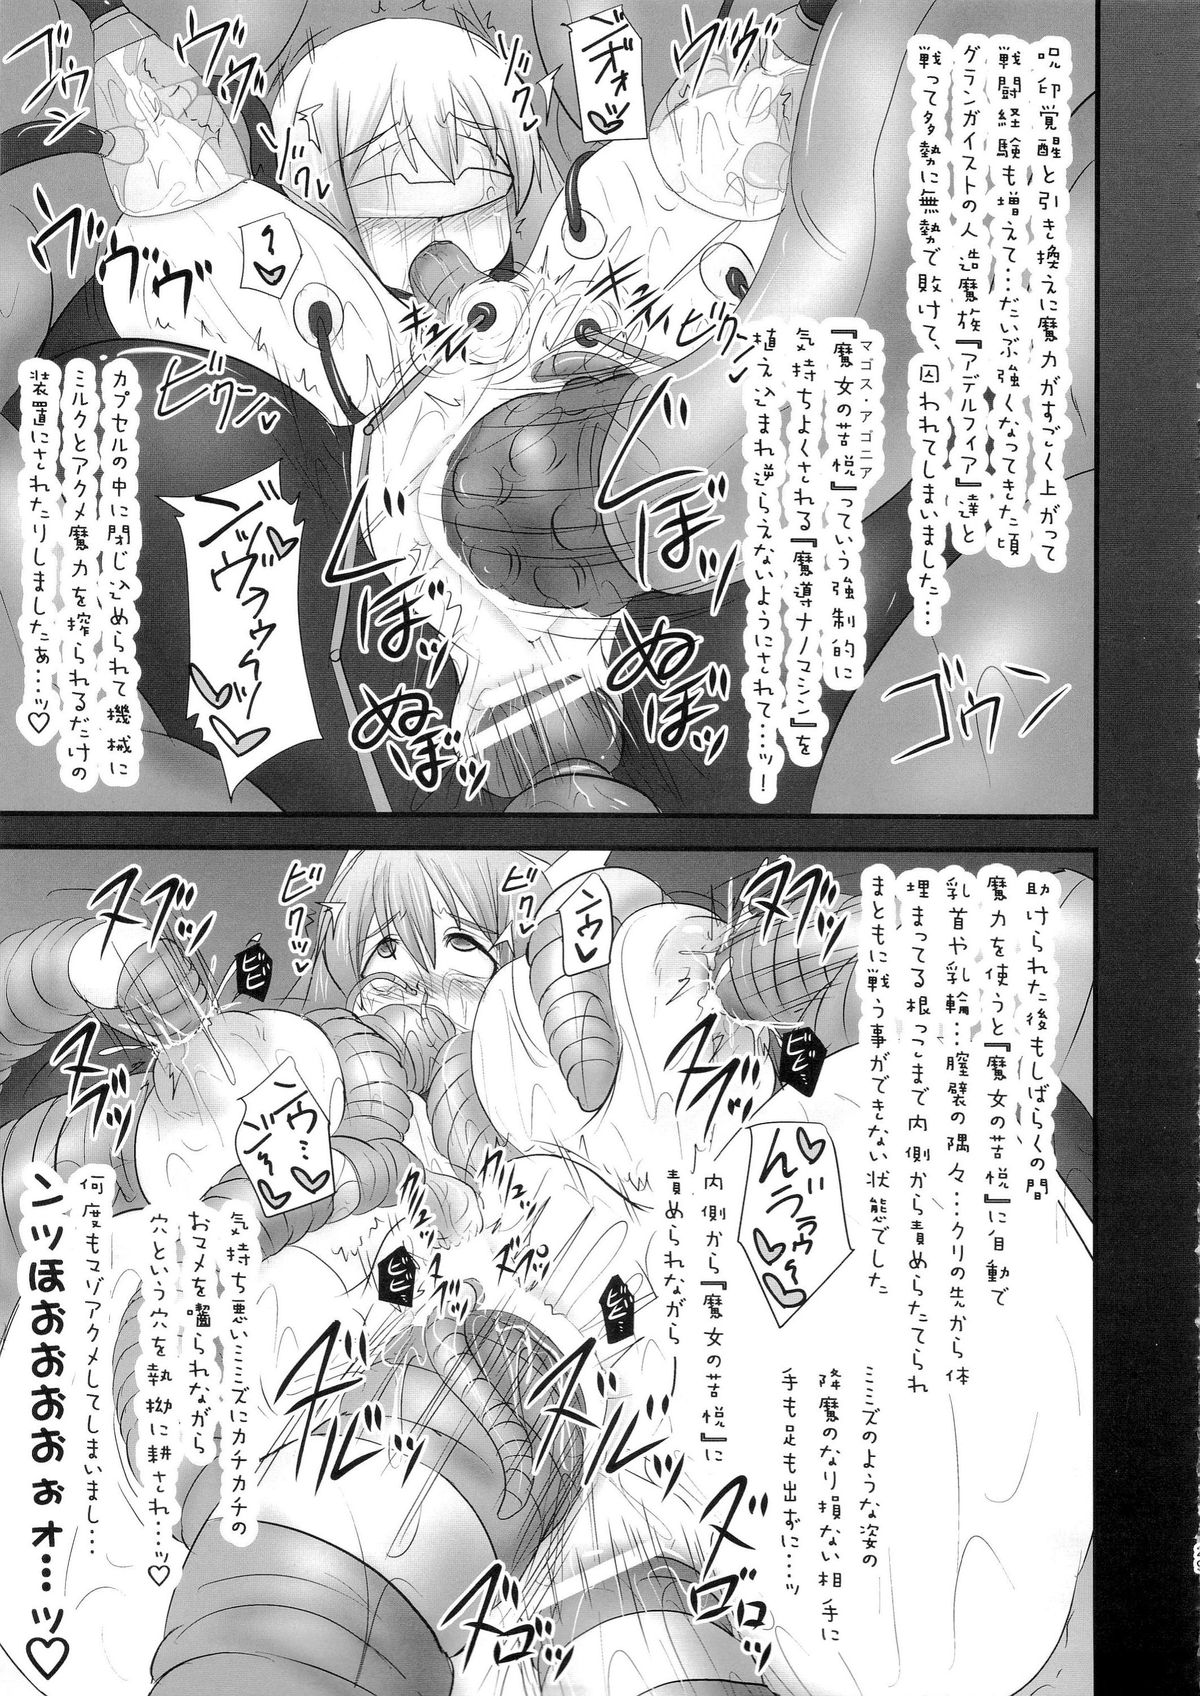 呪印覚醒と引き換えに魔力がすごく上がって
戦闘経験も増えて…だいぶ強くなってきた頃
グランガイストの人造魔族『アデルフィア』達と
戦って多勢に無勢で敗けて、囚われてしまいました…
マゴス・アゴニア
『魔女の苦悦』っていう強制的に
気持ちよくされる『魔導ナノマシン』を
植え込まれ逆らえないようにされて…ッ!
カプセルの中に閉じ込められて機械に
ミルクとアクメ魔力を搾られるだけの
装置にされたりしましたぁ…ッ♡
ンジオォッ
ンッヴヲゥゥッ
?♡
ゴウン
ヴヴヴ
ヴヴヴヴ
ドクドク
ビクンビクン
ビクンッ
ぬぼぬぼッ
ぬぼぬぼッ
ゴウン
助けられた後もしばらくの間
魔力を使うと『魔女の苦悦』に自動で
乳首や乳輪…膣襞の隅々…クリの先から体
埋まってる根っこまで内側から責めらたてられ
まともに戦う事ができない状態でした
ミミズのような姿の
降魔のなり損ない相手に
手も足も出ずに…ッ
内側から『魔女の苦悦』に
責められながら
気持ち悪いミミズにカチカチの
おマメを囓られながら
穴という穴を執拗に耕され…ッ♡
何度もマゾアクメしてしまいまし…
ンッほおおおおぉォ…ッ♡
ビクビク
ビクビク
ヌブヌブッ
ヌブヌブッ
ビビ
ビビ
ビビ
ビビ
ンゥ〜♡
ンゥ…
ズルズルッ
ズルズルッ
ズゾゾゾッ